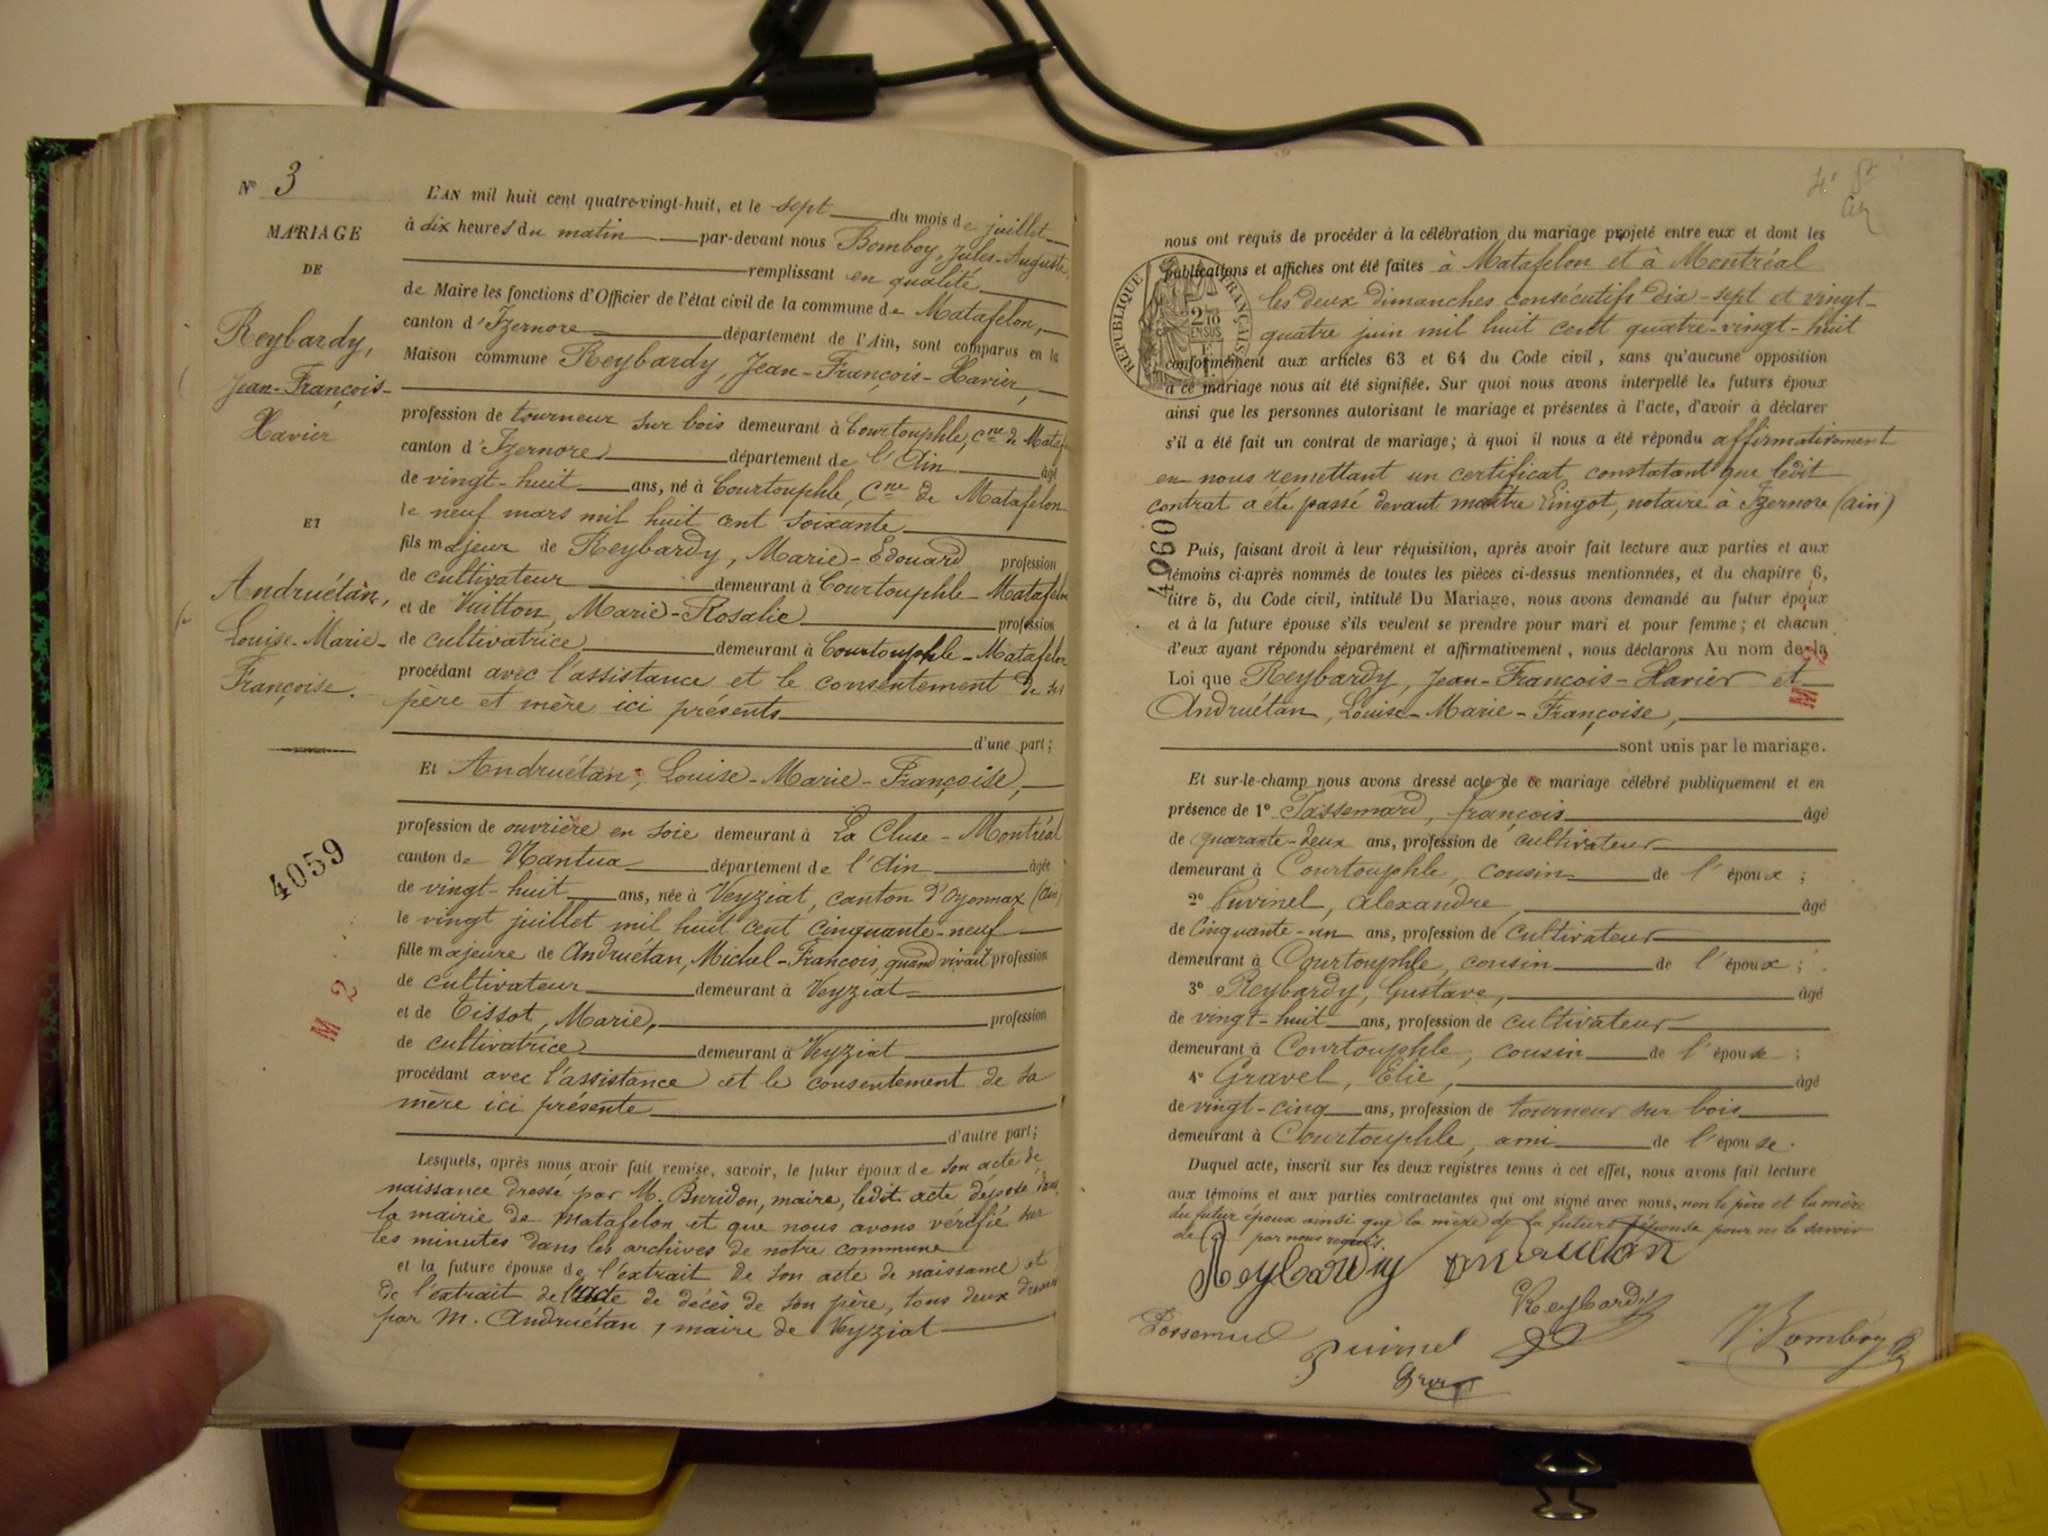 N° 3
MARIAGE
DE
Reybardy,
Jean-François-
Xavier
ET
Andruétan,
Louise-Marie-
Françoise.
4059
M 2
L'AN mil huit cent quatre-vingt-huit, et le sept du mois de juillet
à dix heures du matin par-devant nous Bomboy, Jules-Auguste,
remplissant en qualité
de Maire les fonctions d'Officier de l'état civil de la commune de Matafelon,
canton d'Izernore département de l'Ain, sont comparus en la
Maison commune Reybardy, Jean-François-Xavier,
profession de tourneur sur bois demeurant à Courtouphle, Cne de Mataf
canton d'Izernore département de l'Ain âgé
de vingt-huit ans, né à Courtouphle, Cne de Matafelon
le neuf mars mil huit cent soixante
fils majeur de Reybardy, Marie-Edouard profession
de cultivateur demeurant à Courtouphle-Matafelon
et de Vuitton, Marie-Rosalie profession
de cultivatrice demeurant à Courtouphle-Matafelon
procédant avec l'assistance et le consentement de ses
père et mère ici présents
d'une part;
Et Andruétan, Louise-Marie-Françoise,
profession de ouvrière en soie demeurant à La Cluse-Montréal
canton de Nantua département de l'Ain âgée
de vingt-huit ans, née à Veyziat, canton d'Oyonnax (Ain)
le vingt juillet mil huit cent cinquante-neuf
fille majeure de Andruétan, Michel-François, quand vivait profession
de cultivateur demeurant à Veyziat
et de Tissot, Marie, profession
de cultivatrice demeurant à Veyziat
procédant avec l'assistance et le consentement de sa
mère ici présente
d'autre part;
Lesquels, après nous avoir fait remise, savoir, le futur époux de son acte de
naissance dressé par M. Buridon, maire, ledit acte déposé dans
la mairie de Matafelon et que nous avons vérifié sur
les minutes dans les archives de notre commune
et la future épouse de l'extrait de son acte de naissance et
de l'extrait de l'acte de décès de son père, tous deux dressés
par M. Andruétan, maire de Veyziat
nous ont requis de procéder à la célébration du mariage projeté entre eux et dont les
publications et affiches ont été faites à Matafelon et à Montréal
les deux dimanches consécutifs dix-sept et vingt-
quatre juin mil huit cent quatre-vingt-huit
conformément aux articles 63 et 64 du Code civil, sans qu'aucune opposition
à ce mariage nous ait été signifiée. Sur quoi nous avons interpellé les futurs époux
ainsi que les personnes autorisant le mariage et présentes à l'acte, d'avoir à déclarer
s'il a été fait un contrat de mariage; à quoi il nous a été répondu affirmativement
en nous remettant un certificat constatant que ledit
contrat a été passé devant maître Lingot, notaire à Izernore (Ain)
RÉPUBLIQUE FRANÇAISE
4060
Puis, faisant droit à leur réquisition, après avoir fait lecture aux parties et aux
témoins ci-après nommés de toutes les pièces ci-dessus mentionnées, et du chapitre 6,
titre 5, du Code civil, intitulé Du Mariage, nous avons demandé au futur époux
et à la future épouse s'ils veulent se prendre pour mari et pour femme; et chacun
d'eux ayant répondu séparément et affirmativement, nous déclarons Au nom de la
Loi que Reybardy, Jean-François-Xavier et
Andruétan, Louise-Marie-Françoise,
sont unis par le mariage.
Et sur-le-champ nous avons dressé acte de ce mariage célébré publiquement et en
présence de 1° Tassemard, François âgé
de quarante-deux ans, profession de cultivateur
demeurant à Courtouphle, cousin de l'époux;
2° Puvinel, Alexandre, âgé
de Cinquante-un ans, profession de cultivateur
demeurant à Courtouphle, cousin de l'époux;
3° Reybardy, Gustave, âgé
de vingt-huit ans, profession de cultivateur
demeurant à Courtouphle, cousin de l'épouse;
4° Gravel, Elie, âgé
de vingt-cinq ans, profession de tourneur sur bois
demeurant à Courtouphle, ami de l'épouse.
Duquel acte, inscrit sur les deux registres tenus à cet effet, nous avons fait lecture
aux témoins et aux parties contractantes qui ont signé avec nous, non le père et la mère
du futur époux ainsi que la mère de la future épouse pour ne le savoir
de ce par nous requis.
Reybardy Andruétan
Reybardy
Puvinel
J. Bomboy